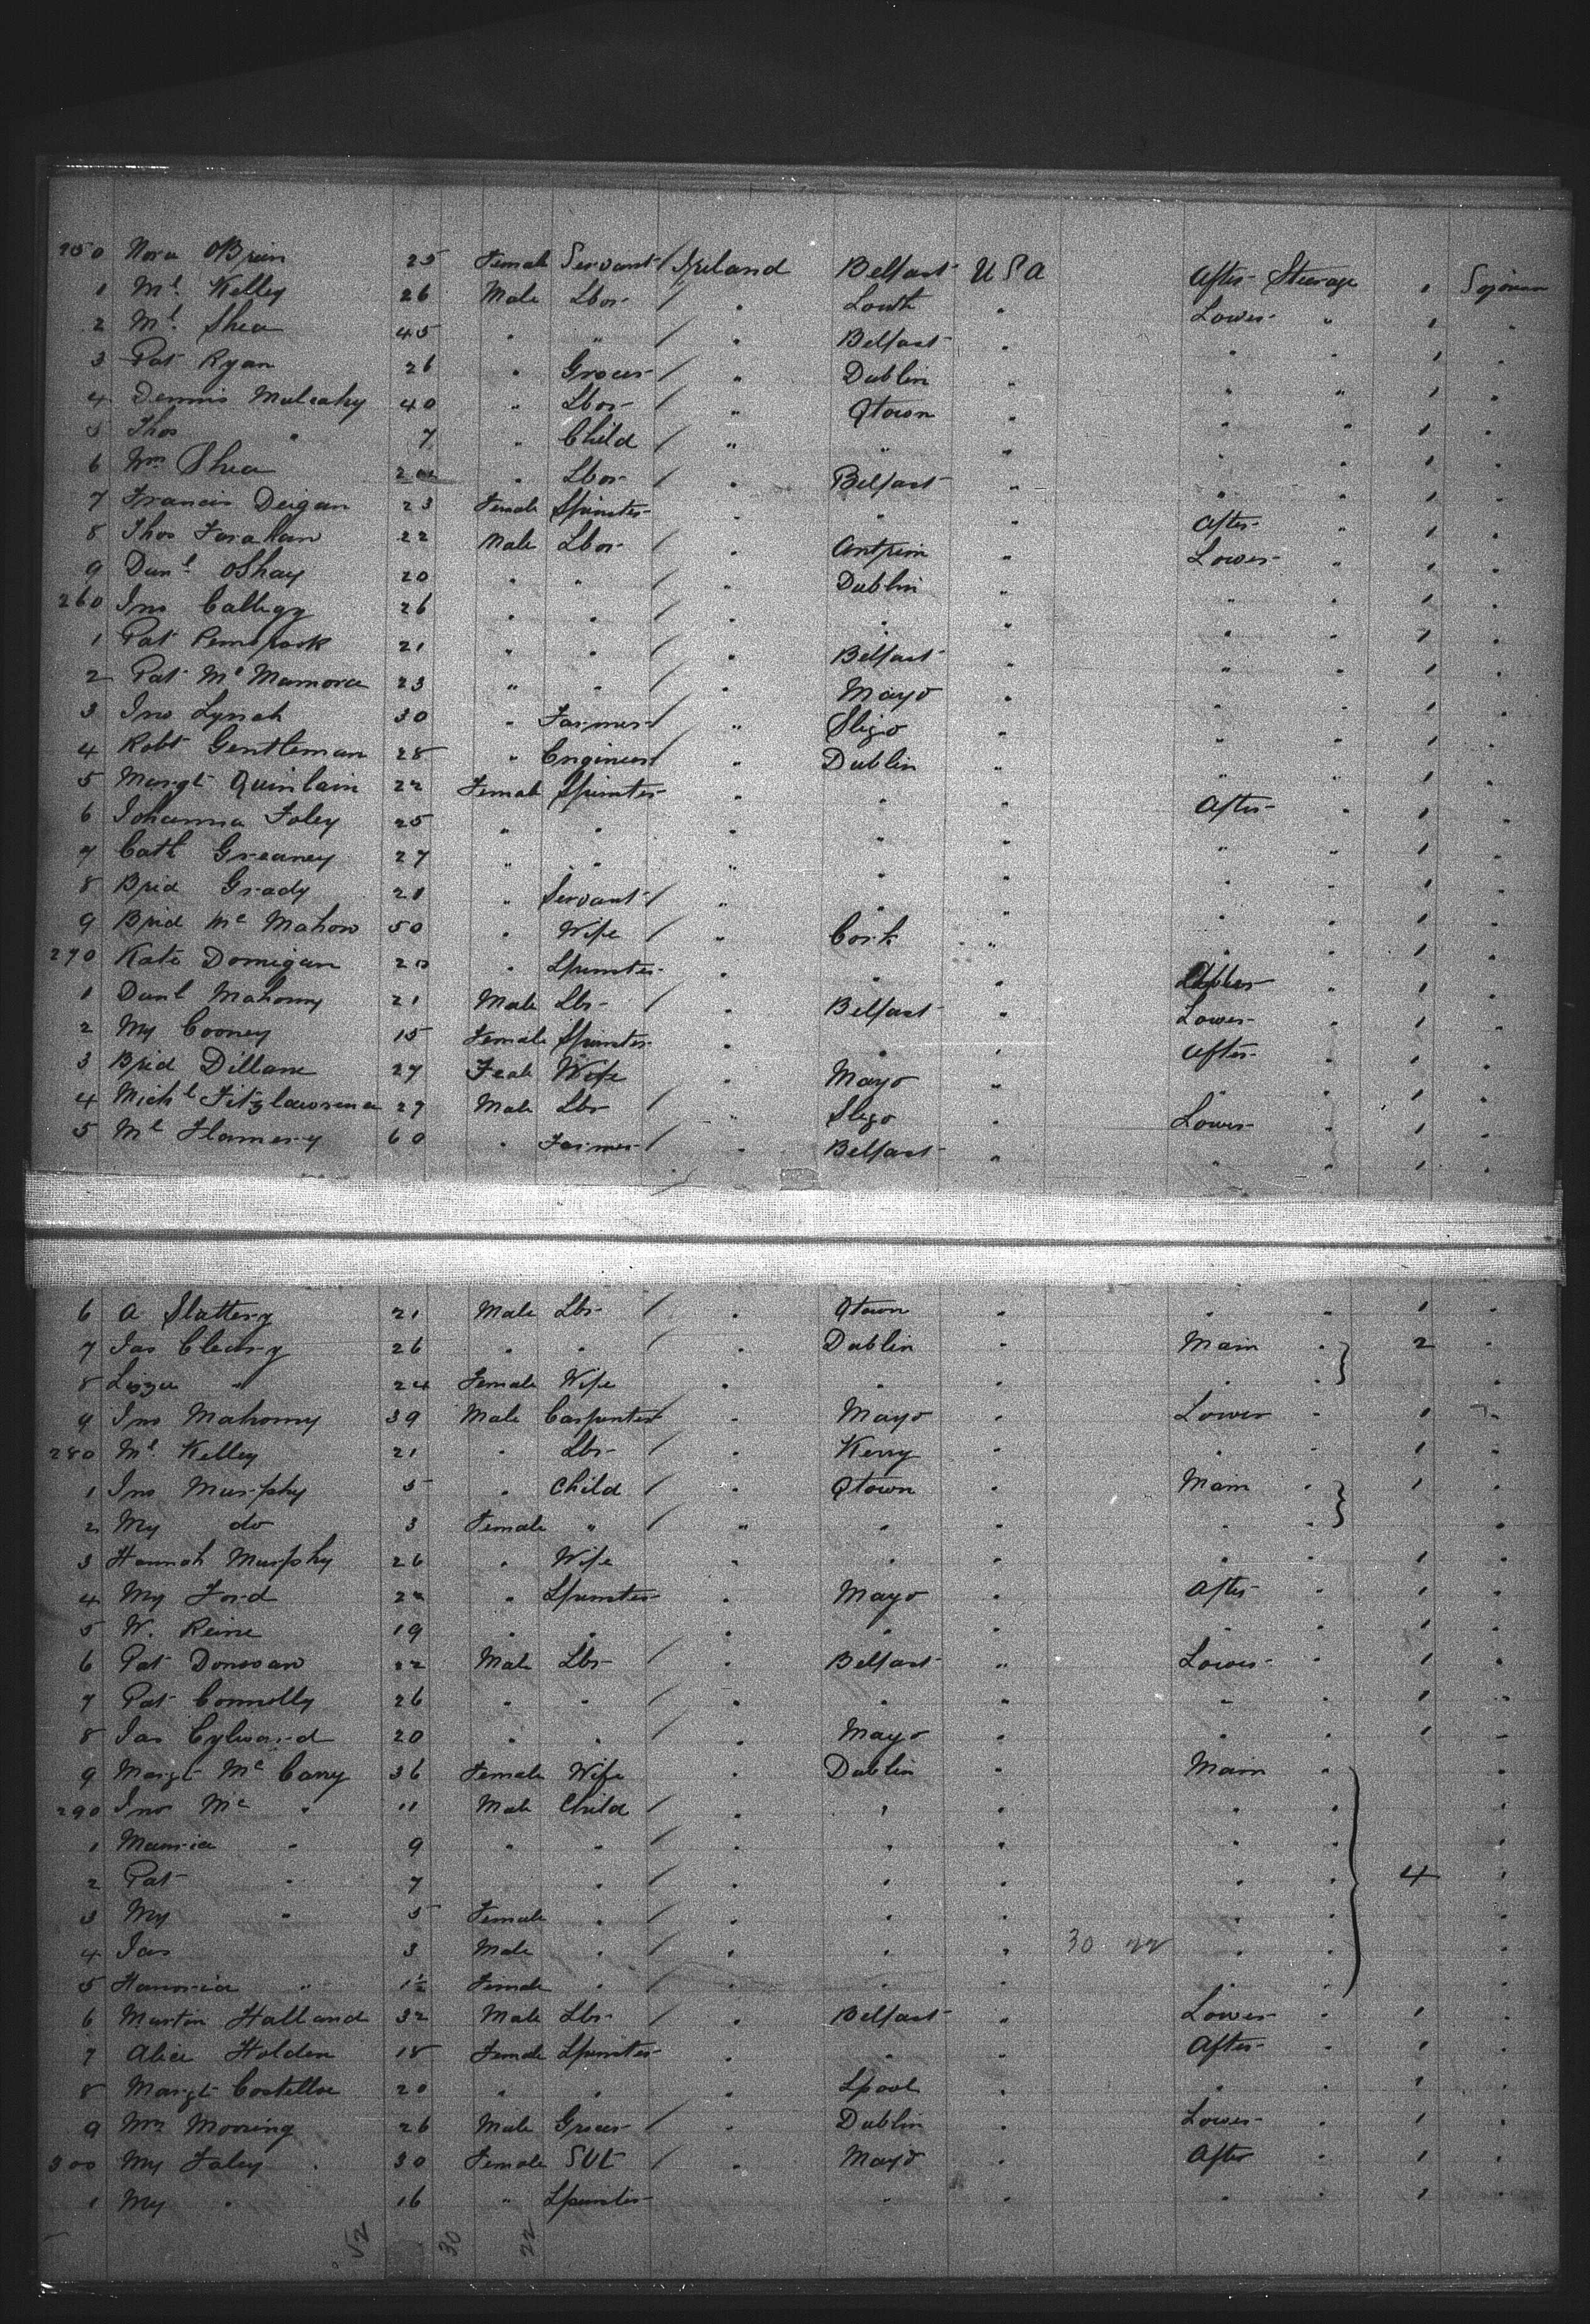 250 Nora OBrien 25 Female Servant / Ireland Belfast USA After Steerage 1 Sojourn
1 Ml. Kelley 26 Male Lbor / " Louth " Lower " 1 "
2 Ml. Shea 45 " " / " Belfast " " " 1 "
3 Pat Ryan 26 " Grocer / " Dublin " " " 1 "
4 Dennis Mulcahy 40 " Lbor / " Qtown " " " 1 "
5 Thos " 7 " Child / " " " " " 1 "
6 Wm Shea " Lbor / " Belfast " " " 1 "
7 Francis Deigan 23 Female Spinster " " " After " 1 "
8 Thos Forahan 22 Male Lbor / " Antrim " Lower " 1 "
9 Danl OShay 20 " " / " Dublin " " " 1 "
260 Jno Callegy 26 " " / " " " " " 1 "
1 Pat 21 " " / " Belfast " " " 1 "
2 Pat Mc Mamora 23 " " / " Mayo " " " 1 "
3 Jno Lynch 30 " Farmer / " Sligo " " " 1 "
4 Robt Gentleman 28 " Engineer / " Dublin " " " 1 "
5 Margt Quinlain 22 Female Spinster " " " After " 1 "
6 Johanna Foley 25 " " " " " " " 1 "
7 Cath Greaney 27 " " " " " " " 1 "
8 Brid Grady 21 " Servant / " " " " " 1 "
9 Brid Mc Mahon 50 " Wife / " Cork " " " 1 "
270 Kate Domigan 20 " Spinster " " " After " 1 "
1 Danl Mahony 21 Male Lbr / " Belfast " Lower " 1 "
2 My Cooney 15 Female Spinster " " " After " 1 "
3 Brid Dillane 27 Feale Wife " Mayo " " " 1 "
4 Michl Fitzlawrence 27 Male Lbr / " Sligo " Lower " 1 "
5 Ml Flamery 60 " Farmer / " Belfast " " " 1 "
6 A Slattery 21 Male Lbr / " Qtown " " " 1 "
7 Jas Cleary 26 " " / " Dublin " Main " 2 "
8 Lizza " 24 Female Wife " " " " " "
9 Jno Mahony 39 Male Carpenter " Mayo " Lower " 1 "
280 Ml Kelley 21 " Lbr / " Kerry " " " 1 "
1 Jno Murphy 5 " Child / " Qtown " Main " 1 "
2 My do 3 Female " / " " " " " "
3 Hannah Murphy 26 " Wife " " " " " 1 "
4 My Ford 22 " Spinster " Mayo " After " 1 "
5 W. Reine 19 " " " " " " " 1 "
6 Pat Donovan 22 Male Lbr / " Belfast " Lower " 1 "
7 Pat Connolly 26 " " / " " " " " 1 "
8 Jas Cylward 20 " " / " Mayo " " " 1 "
9 Margt Mc Carry 36 Female Wife " Dublin " Main " "
290 Jno Mc " 11 Male Child / " " " " " "
1 Maurice " 9 " " / " " " " " "
2 Pat " 7 " / " " " " " 4 "
3 My " 5 Female " / " " " " " "
4 Jas 3 Male " / " " " 30 22 " " "
5 Hanoria " 1½ Female " / " " " " " "
6 Martin Halland 32 Male Lbr / " Belfast " Lower " 1 "
7 Alice Holden 18 Female Spinster " " " After " 1 "
8 Margt Costelloe 20 " " " Lpool " " " 1 "
9 Wm Mooring 26 Male Grocer / " Dublin " Lower " 1 "
300 My Faley 30 Female SVt / " Mayo " After " 1 "
1 My " 16 " Spinster " " " " 1 "
52 30 22